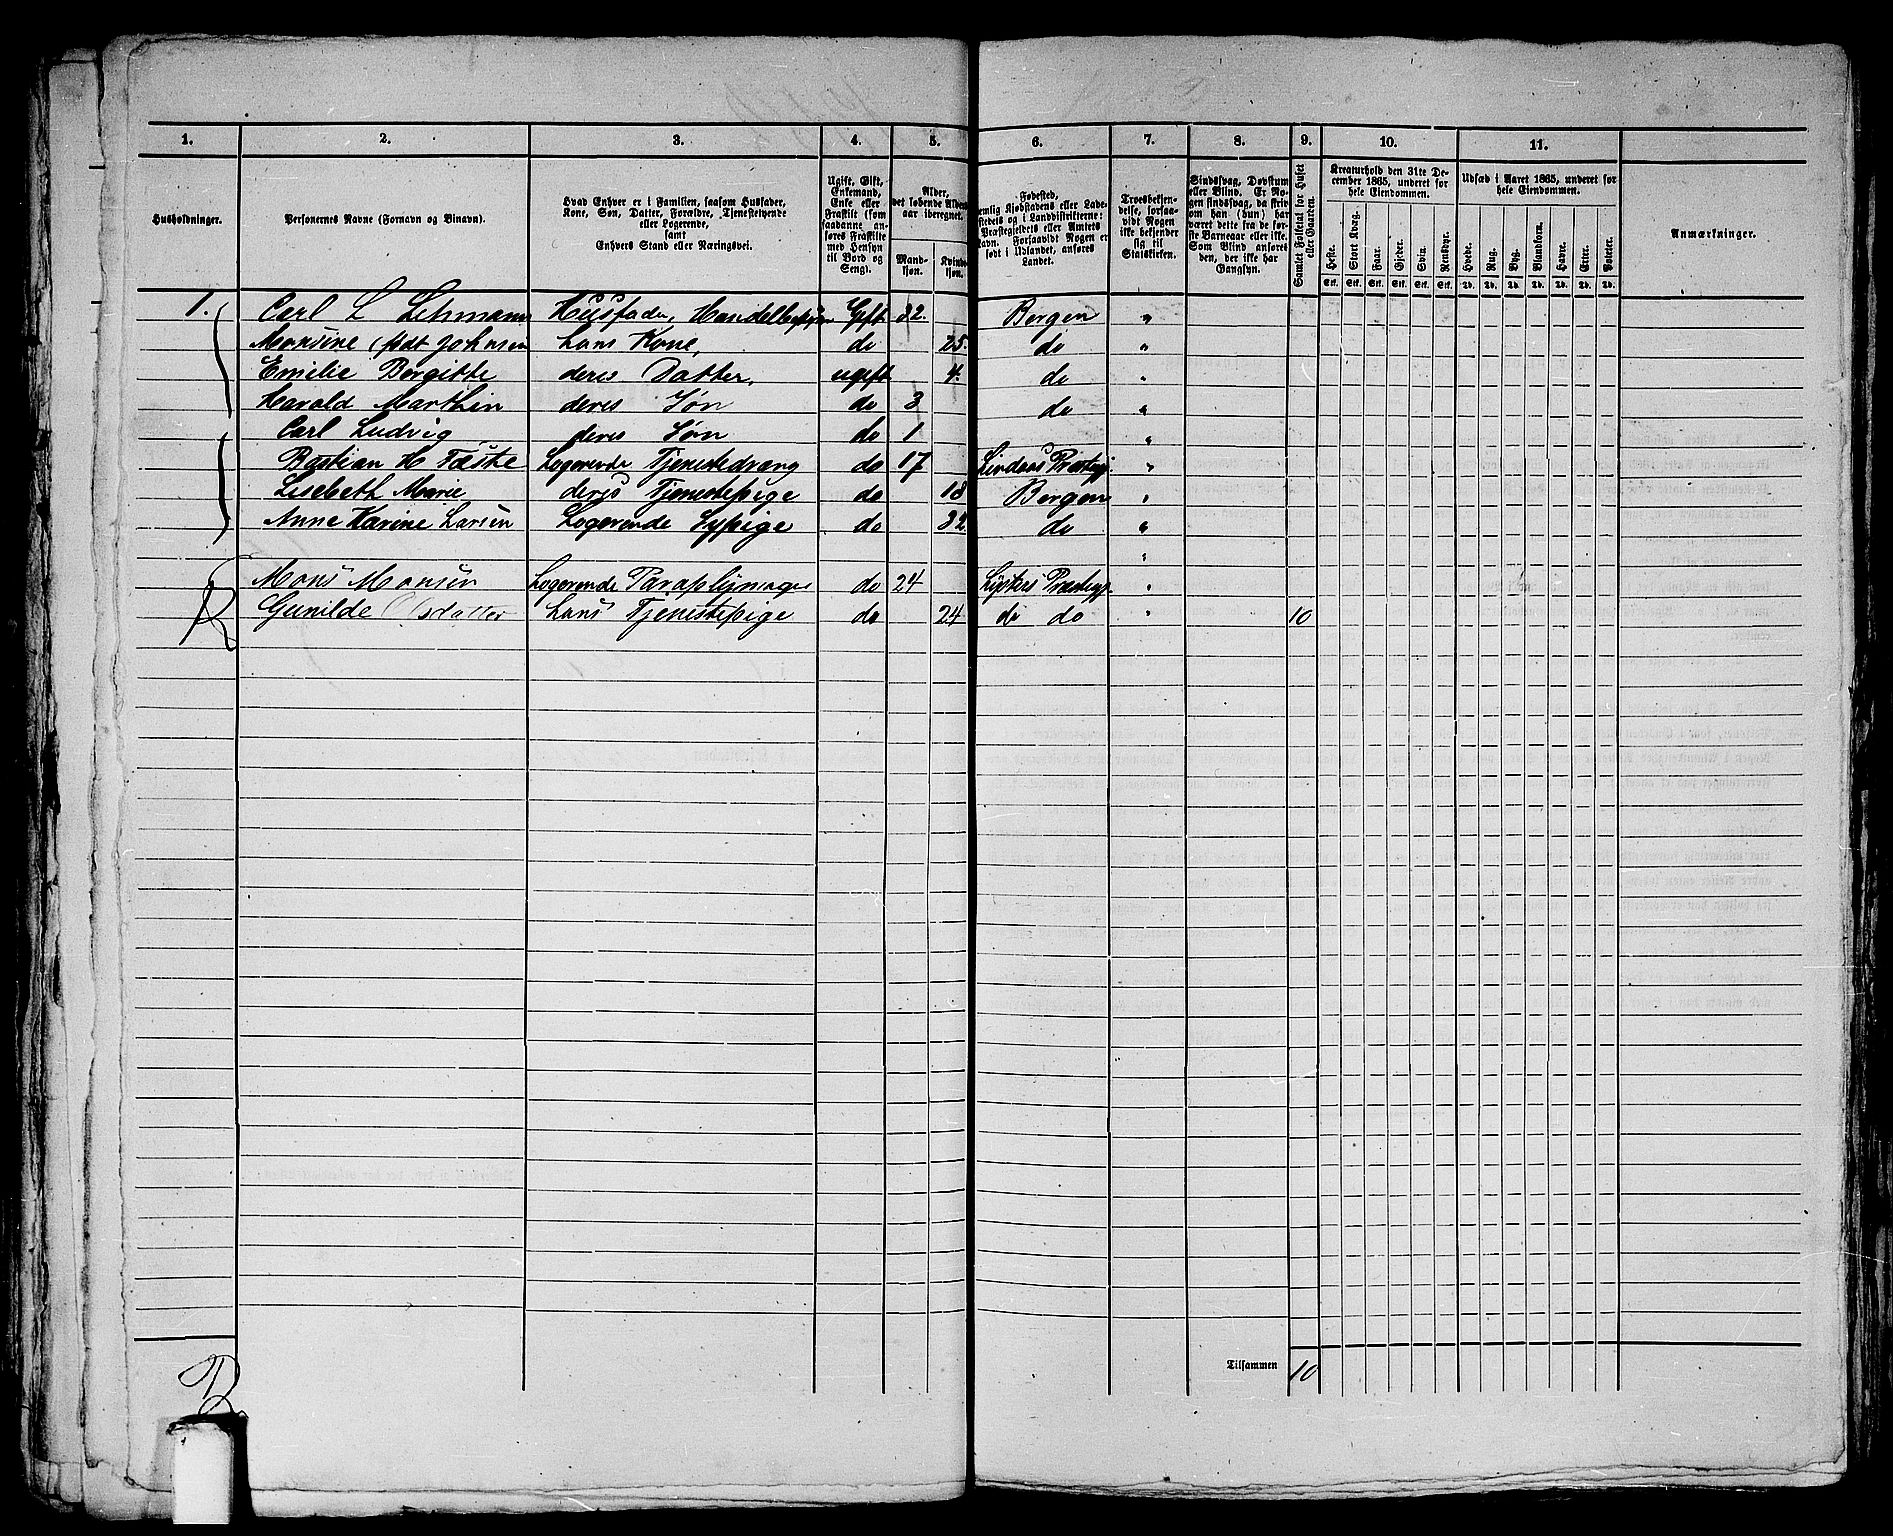 1. 2. 3. 4. 5. 6. 7. 8. 9. 10. 11.
Husholdninger.
Personernes Navne (Fornavn og Binavn).
Hvad Enhver er i Familien, saasom Husfader,
Kone, Søn, Datter, Forældre, Tjenestetyende
eller Logerende,
samt
Enhvers Stand eller Næringsvei.
Ugift, Gift,
Enkemand,
Enke eller
Fraskilt (som
saadanne an-
føres Fraskilte
med Hensyn
til Bord og
Seng).
Alder,
det løbende Alders-
aar iberegnet.
Mand-
kjøn.
Kvinde-
kjøn.
Fødested,
Præstegjeldets eller Amtets
Navn. Forsaavidt Nogen er
født i Udlandet, anføres
Landet.
Troesbekjen-
delse, forsaa-
vidt Nogen
ikke bekjender
sig til
Statskirken.
Sindssvag, Døvstum
eller Blind. Er No-
gen sindssvag, da skriv
om han (hun) har
været dette fra de før-
ste Barneaar eller ikke.
Som Blind anføres
den, der ikke har
Gangsyn.
Samlet Folketal for Huset
eller Gaarden.
Kreaturhold den 31te De-
cember 1865, underet for
hele Eiendommen.
Heste. Stort Kvæg. Faar. Gjeder. Svin. Rensdyr.
Stk. Stk. Stk. Stk. Stk. Stk.
Udsæd i Aaret 1865, underet for
hele Eiendommen.
Hvede. Rug. Byg. Blandkorn. Havre. Erter. Poteter.
Td. Td. Td. Td. Td. Td. Td.
Anmærkninger.
1. Carl L Lehmann Husfader, Gift 32. Bergen "
Monsine født Johnsen hans Kone, do 25. do "
Emilie Bergitte deres Datter, ugift 4. do "
Harald Marthin deres Søn do 3 do "
Carl Ludvig deres Søn do 1 "
Bastian H Fæste Logerende Tjenestedreng do 17 Lindaas Præstegj. "
Lisebeth Marie deres Tjenestepige do 18 Bergen "
Anne Karine Larsen Logerende Sypige do 32 do "
"
Mons Monsen Logerende Paraplymager do 24 Lysters Præstegj. "
Gunilde Olsdatter hans Tjenestepige do 24 do do " 10
Tilsammen 10